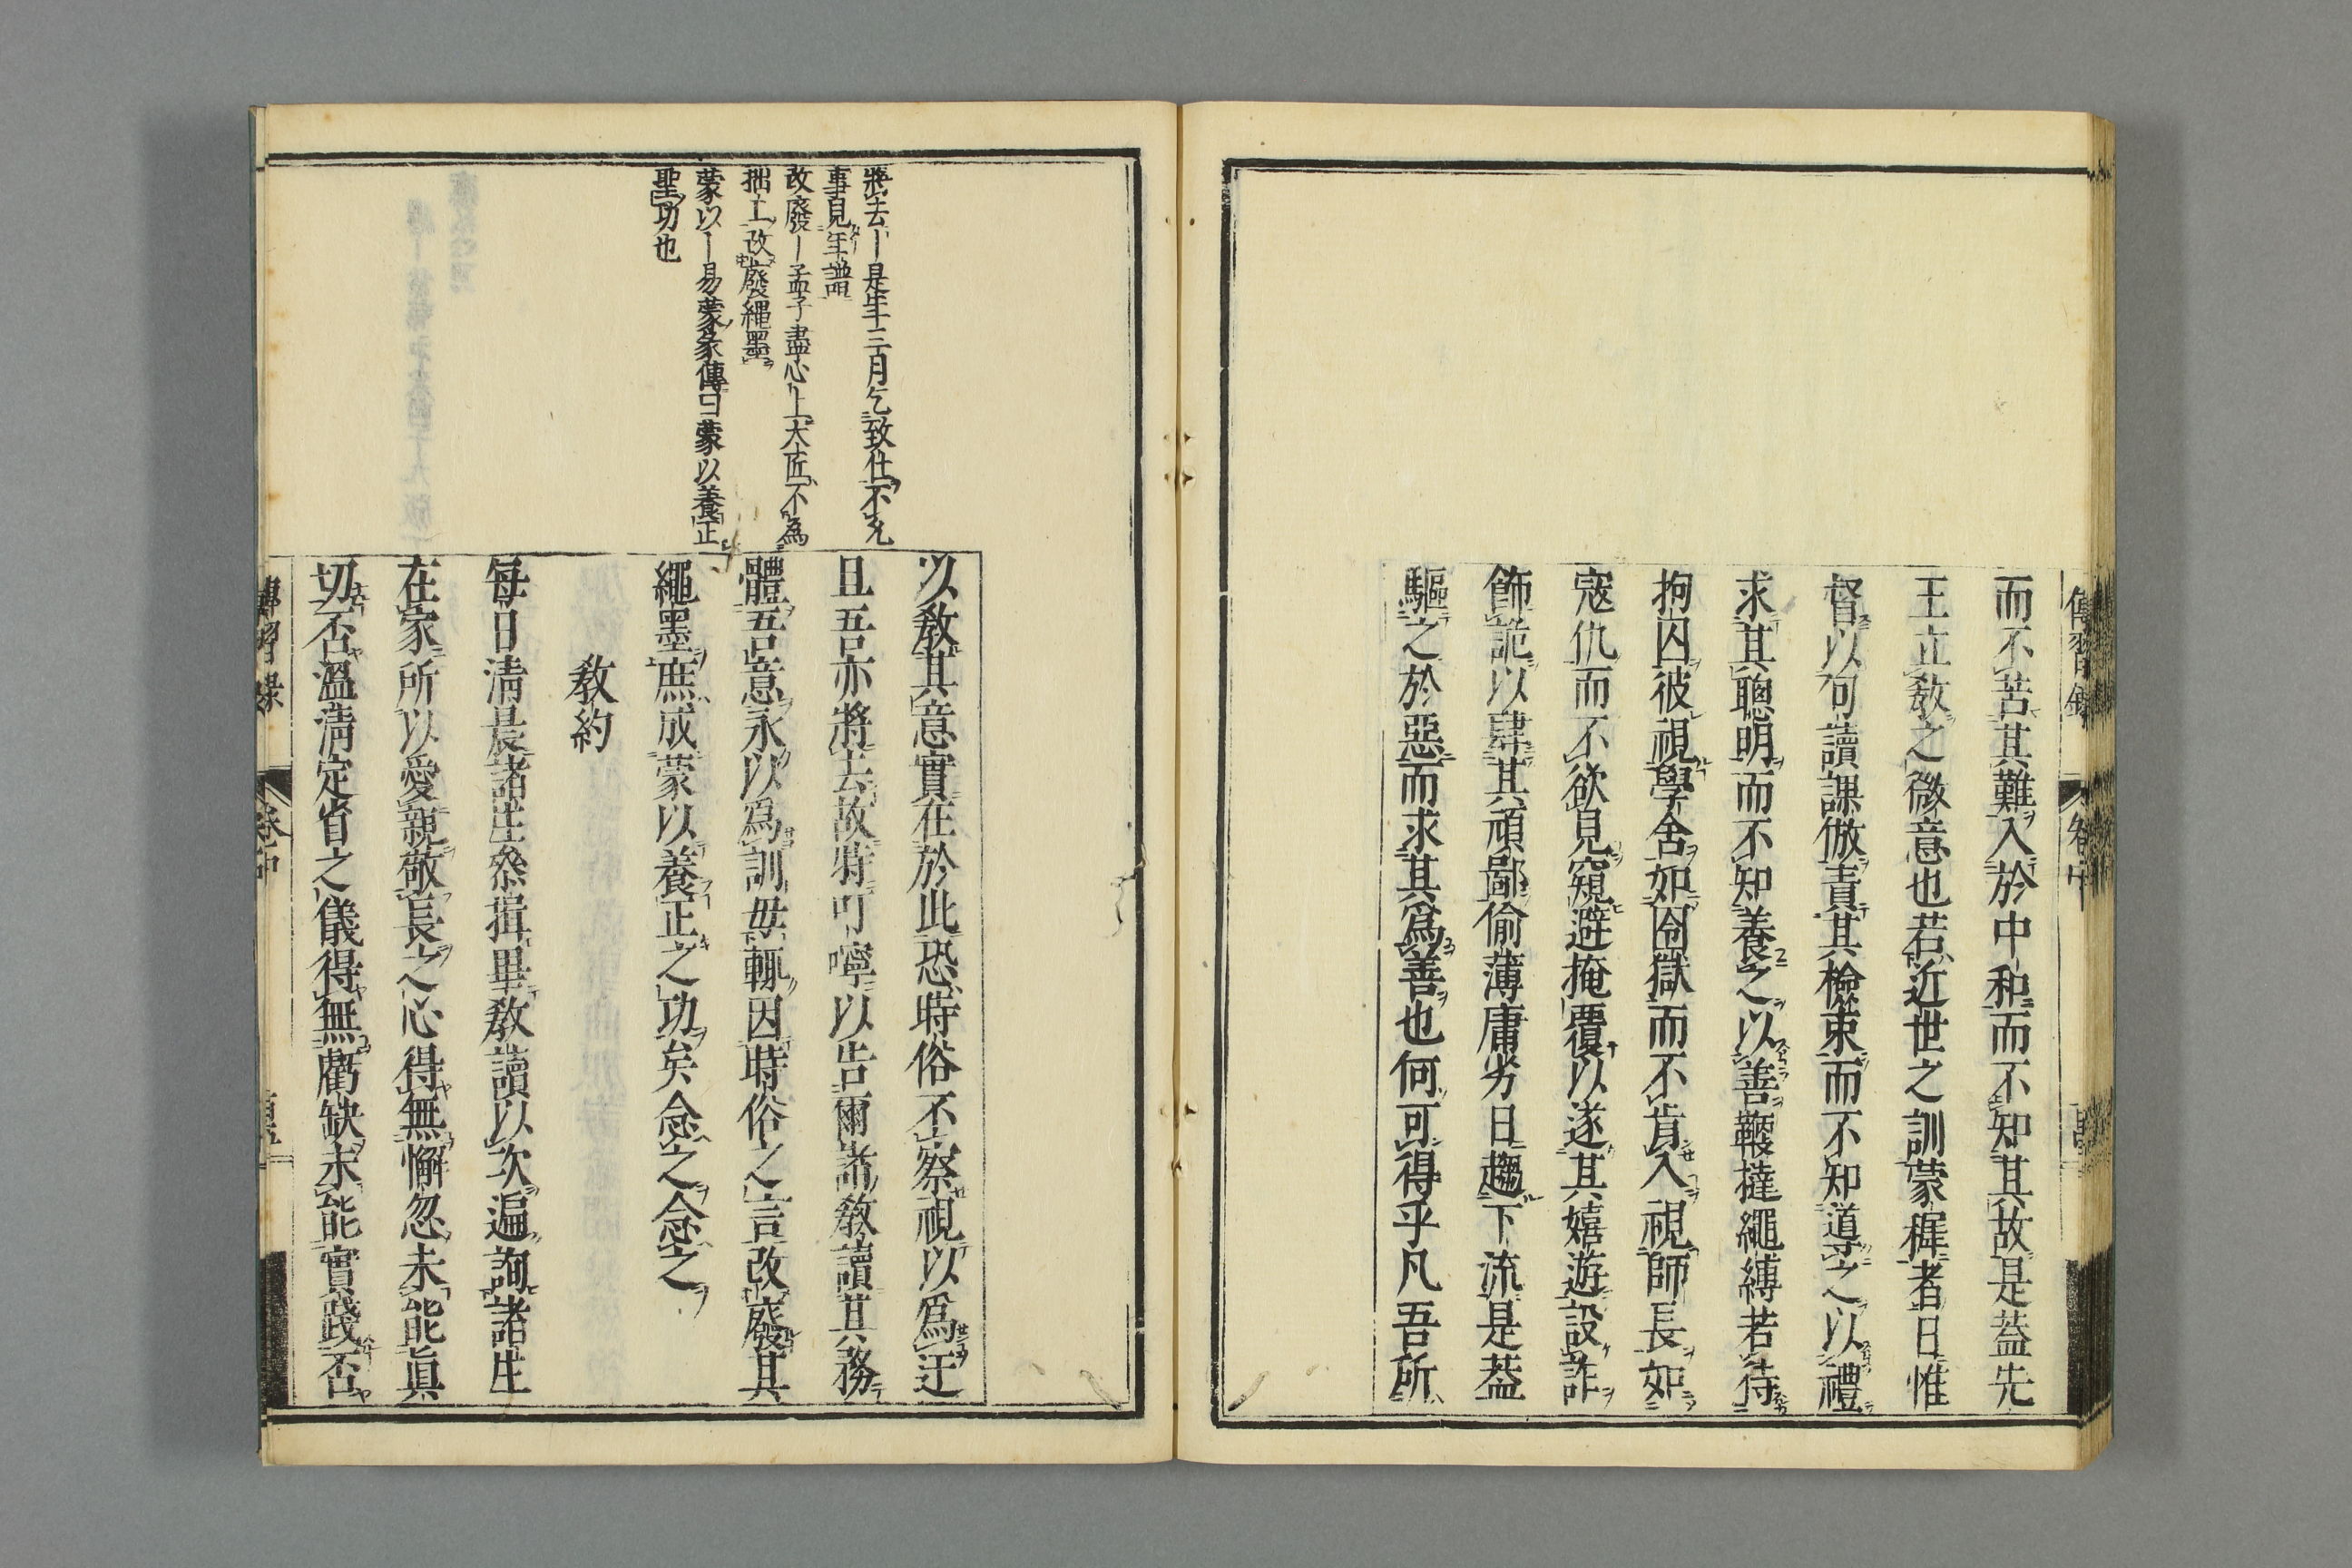 傳習録
卷中
而不苦其難入於中和而不知其故是葢先
王立敎之微意也若近世之訓蒙穉者日惟
督以句讀課倣責其檢束而不知導之以禮
求其聰明而不知養之以善鞭撻繩縛若待
拘囚彼視學舍如囹獄而不肯入視師長如
寇仇而不欲見窺避掩覆以遂其嬉遊設詐
飾詭以肆其頑鄙偷薄庸劣日趨下流是葢
驅之於惡而求其爲善也何可得乎凡吾所
將去ー是年三月乞致仕不允
事見年譜
改廢ー孟子盡心上大匠不為
拙工改廢繩墨
蒙以ー易蒙彖傳曰蒙以養正
聖功也
以敎其意實在於此恐時俗不察視以爲迂
且吾亦將去故特叮嚀以告爾諸敎讀其務
體吾意永以爲訓毋輙因時俗之言改廢其
繩墨庶成蒙以養正之功矣念之念之
敎約
每日清晨諸生叅揖畢敎讀以次遍詢諸生
在家所以愛親敬長之心得無懈忽未能眞
切否溫凊定省之儀得無虧缺未能實踐否
傳習録
卷中